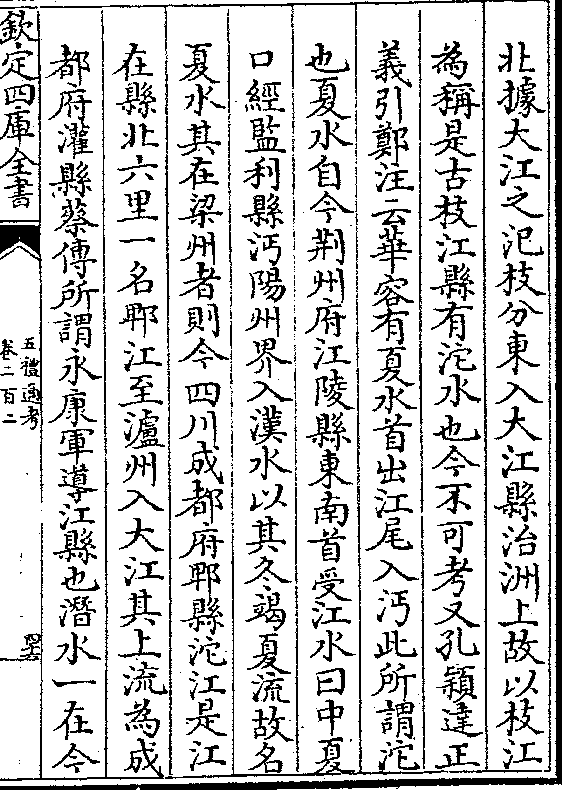 北據大江之氾枝分東入大江縣治洲上故以枝江
為稱是古枝江縣有沱水也今不可考又孔穎達正
義引鄭注云華容有夏水首出江尾入沔此所謂沱
也夏水自今荆州府江陵縣東南首受江水曰中夏
口經監利縣沔陽州界入漢水以其冬竭夏流故名
夏水其在梁州者則今四川成都府郫縣沱江是江
在縣北六里一名郫江至瀘州入大江其上流為成
都府灌縣蔡傳所謂永康軍導江縣也潛水一在今
欽定四庫全書
五禮通考
卷二百二